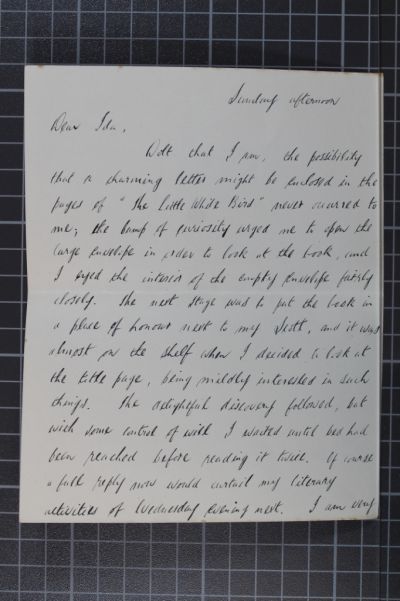 Sunday afternoon
Dear Ida,
Dolt that I am, the possibility
that a charming letter might be enclosed in the
pages of "The Little White Bird" never occurred to
me; the bump of curiosity urged me to open the
large envelope in order to look at the book, and
I eyed the interior of the empty envelope fairly
closely. The next stage was to put the book in
a place of honour next to my , and it was
almost on the shelf when I decided to look at
the title page, being mildly interested in such
things. The delightful discovery followed, but
with some control of will I waited until bed had
been reached before reading it twice. Of course
a full reply now would curtail my literary
activities of Wednesday evening next. I am very